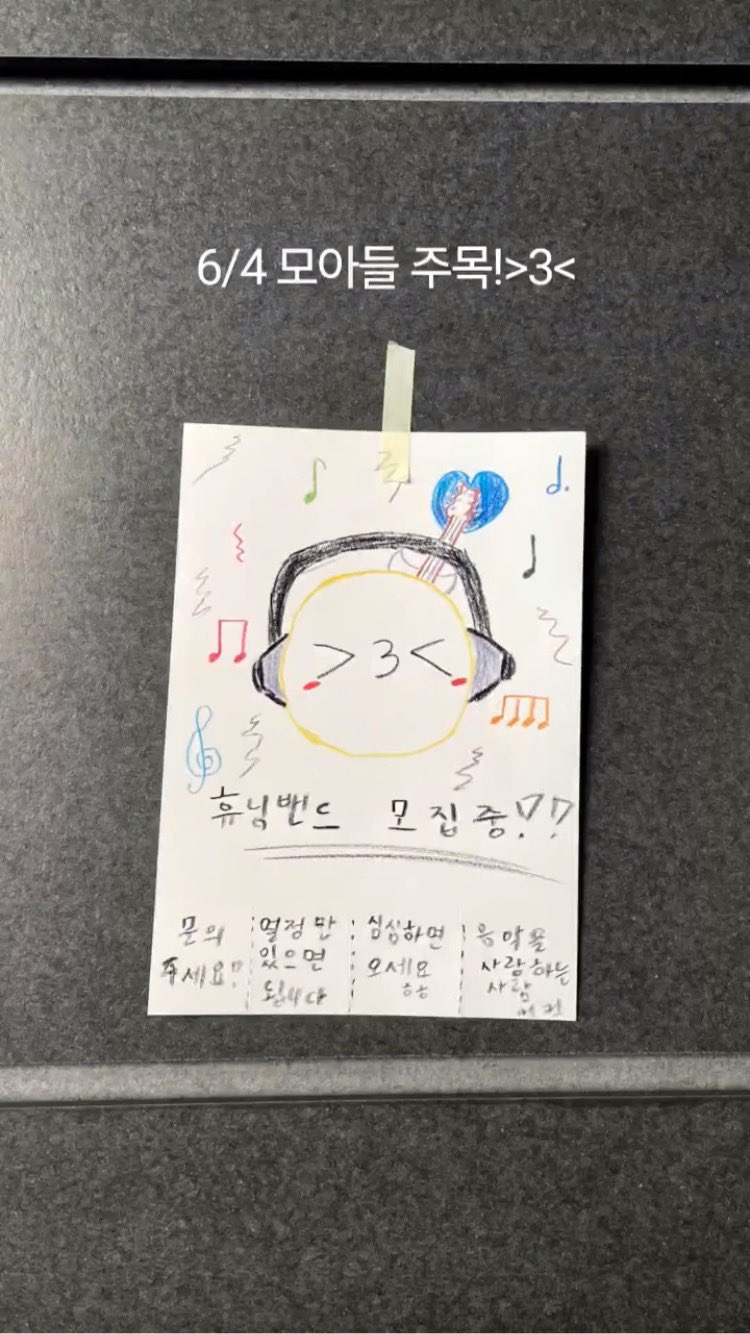 6/4 모아들 주목!>3<
>3<
휴닝밴드 모집중!!
문의
주세요!
열정만
있으면
됩니다
심심하면
오세요
ㅎㅎ
음악을
사랑하는
사람